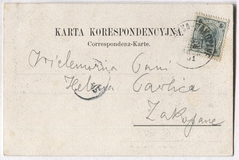 KARTA KORESPONDENCYJNA.
Correspondenz-Karte.
Wielemożna Pani
Helena Pawlica
Zakopane